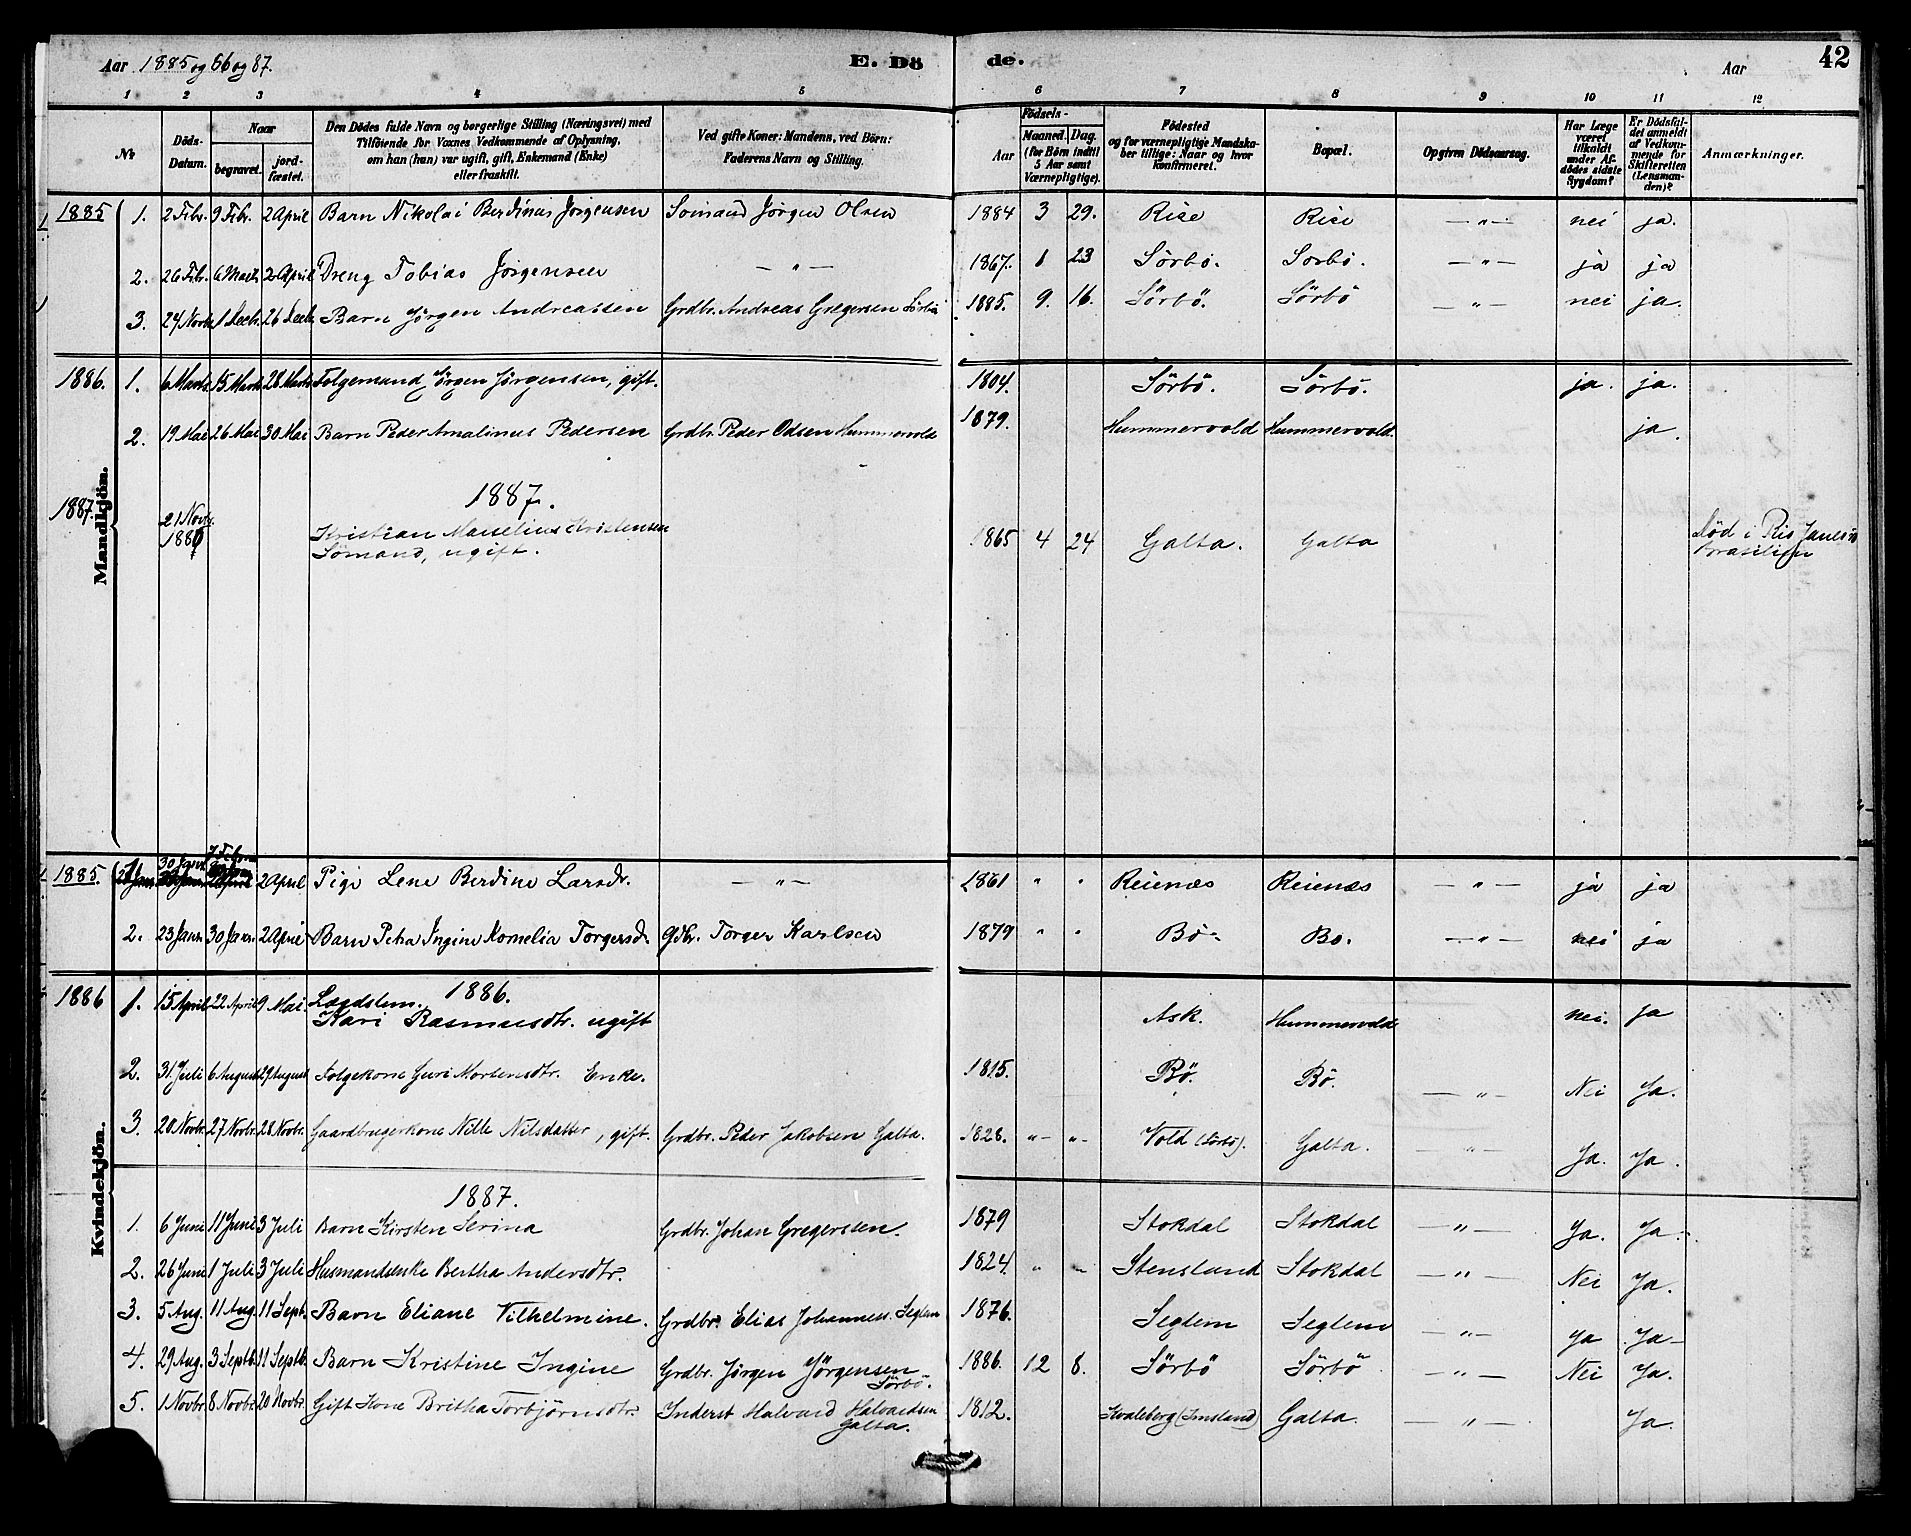 Aar 1885 og 86 og 87.
E. Dö
de.
Aar
42
1 2 3 4 5 6 7 8 9 10 11 12
Nr.
Döds-Datum.
Naar
begravet.
jordfæstet.
Den Dödes fulde Navn og borgerlige Stilling (Næringsvei) med
Tilföiende for Voxnes Vedkommende af Oplysning,
om han (hun) var ugift, gift, Enkemand (Enke)
eller fraskilt.
Ved gifte Koner: Mandens, ved Börn:
Faderens Navn og Stilling.
Födsels-
Aar
Maaned. Dag.
(for Börn indtil
5 Aar samt
Værnepligtige).
Födested
og for værnepligtige Mandska-
ber tillige: Naar og hvor
konfirmeret.
Bopæl.
Opgiven Dödsaarsag.
Har Læge
været
tilkaldt
under Af-
dödes sidste
Sygdom?
Er Dödsfal-
det anmeldt
af Vedkom-
mende for
Skifteretten
(Lensman-
den)?
Anmærkninger.
Mandkjön.
1885 1. 2 Febr. 9 Febr. 2 April Barn Nikolai Berdinus Jörgensen Sömand Jörgen Olsen 1884 3 29. Rise Rise — " — nei ja.
2. 26 Febr. 6 Marts 2 April Dreng Tobias Jörgensen — " — 1867. 1 23 Sörbö. Sörbö. — " — ja ja
3. 24 Novbr. 1 Decbr. 26 Decbr. Barn Jörgen Andreassen Grdbr. Andreas Gregersen Sörbö 1885. 9. 16. Sörbö. Sörbö — " — nei ja.
1886. 1. 6 Marts 15 Marts 28 Marts Folgemand Jörgen Jörgensen, gift. 1804. Sörbö. Sörbö. ja. ja.
2. 19 Mai 26 Mai 30 Mai Barn Peder Amalinus Pedersen Grdbr. Peder Odsen Hummervold 1879. Hummervold Hummervold. ja.
1887.
1887. 21 Novbr. Kristian Marselius Kristensen
188 Sömand, ugift. 1865 4 24 Galta. Galta Död i Rio Janeiro
Brasilien
Kvindekjön.
1885. 30 Janr. 7 Febr. 2 April Pige Lene Berdine Larsdr. — " — 1861 " " Reienæs Reienæs — " — ja ja
2. 23 Janr. 30 Janr. 2 April Barn Petra Ingine Kornelia Torgersdr. gdbr. Torger Karlsen 1879 " " Bö. Bö. — " — nei ja
1886.
1886 1. 15 April 22 April 9 Mai. Lægdslem.
Kari Rasmusdtr. ugift Ask. Hummervold nei. ja
2. 31. Juli 6 August 29 August Folgekone Guri Mortensdtr. Enke. 1815. Bö. Bö. — " — Nei Ja.
3. 20 Novbr. 27 Novbr. 28 Novbr. Gaardbrugerkone Nille Nilsdatter, gift. Grdbr. Peder Jakobsen Galta. 1828. " — " — Vold (Sörbö). Galta. — " — Ja. Ja.
1887.
1. 6 Juni 11 Juni 3 Juli Barn Kirsten Serina Grdbr. Johan Gregersen. 1879 Stokdal Stokdal — " — Ja. Ja.
2. 26 Juni 1 Juli 3 Juli Husmandsenke Bertha Andersdtr. 1824. " " Stensland Stokdal — " — Nei Ja.
3. 5 Aug. 11 Aug. 11 Sept. Barn Eliane Vilhelmine. Grdbr. Elias Johanness. Seglem 1876. Seglem Seglem — " — Ja Ja
4. 29 Aug. 3 Septb. 11 Septb. Barn Kristine Ingine Grdbr. Jörgen Jörgensen
Sörbö. 1886. 12 8. Sörbö Sörbö — " — Nei Ja.
5. 1 Novbr. 8 Novbr. 20 Novbr. Gift Kone Britha Torbjörnsdtr. Inderst Halvard Halvardsen
Galta. 1812. Kvaleberg (Imsland) Galta. — " — Ja.